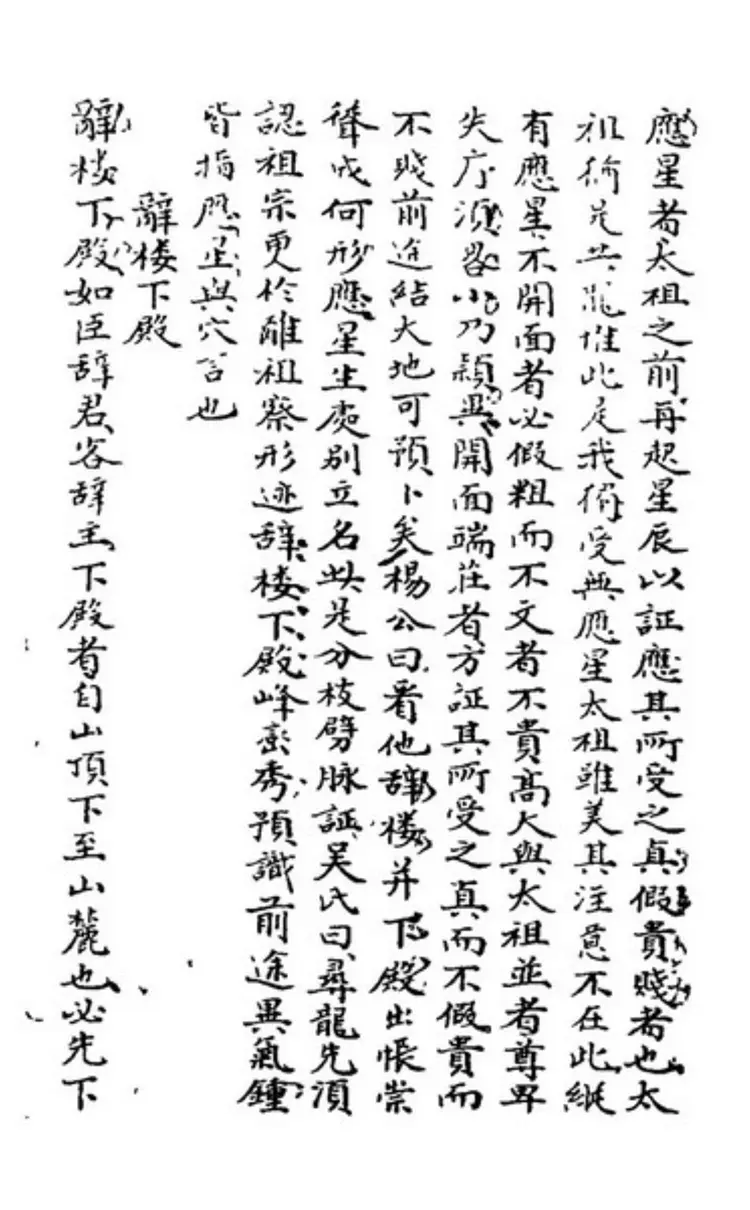 應星者太祖之前再起星辰以証應其所受之真假貴賤者也太
祖猶是共龍惟此是我獨受無應星太祖雖美其注意不在此縱
有應星不開面者必假粗而不文者不貴高大與太祖並者尊卑
失序須畧小乃穎異開面端莊者方証其所受之真而不假貴而
不賤前途結大地可預卜矣楊公曰看他辞楼并下殿出帳
聳成何形應星生處别立名此是分枝劈脉証吴氏曰尋龍先須
認祖宗更於離祖察形迹辞楼下殿峰巒秀預識前途異氣鍾
皆指應星與穴言也
辭楼下殿
辭楼下殿如臣辞君客辞主下殿者自山頂下至山麓也必先下